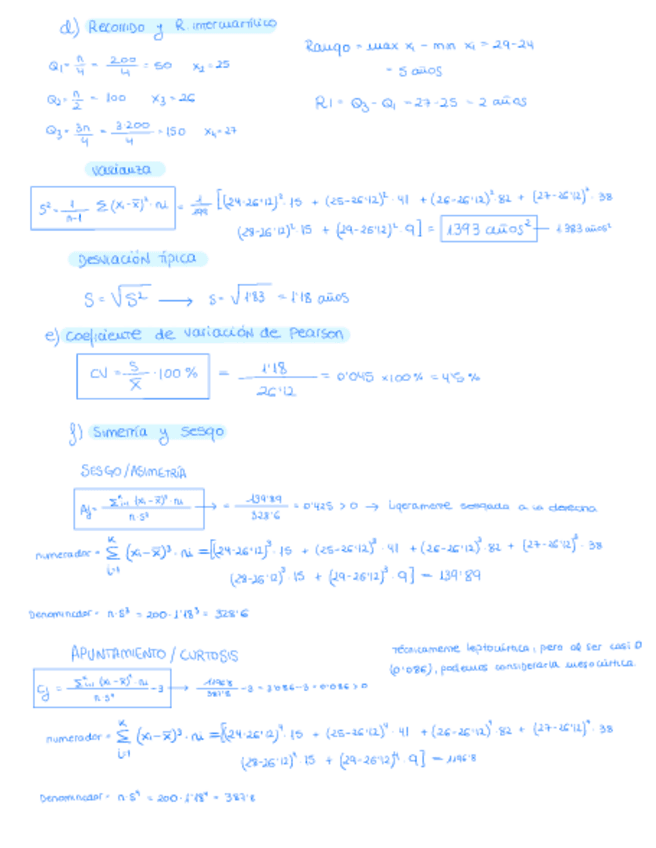 d) Recorrido y R. intercuartílico
Rango = max xi - min xi = 29-24
= 5 años
Q1 = n/4 = 200/4 = 50 x2 = 25
Q2 = n/2 = 100 x3 = 26
RI = Q3 - Q1 = 27-25 = 2 años
Q3 = 3n/4 = 3·200/4 = 150 x4 = 27
varianza
S² = 1/n-1 Σ(xi-x̄)²·ni = 1/199 [(24-26'12)²·15 + (25-26'12)²·41 + (26-26'12)²·82 + (27-26'12)²·38
(28-26'12)²·15 + (29-26'12)²·9] = 1393 años² 1'383 años²
Desviación típica
S = √S² → s = √1'83 = 1'18 años
e) coeficiente de variación de Pearson
CV = S/x̄ · 100% = 1'18/26'12 = 0'045 x100% = 4'5%
f) simetría y sesgo
SESGO/ASIMETRÍA
= 139'89/328'6 = 0'425 > 0 → Ligeramente sesgada a la derecha
numerador = Σ (xi-x̄)³·ni = [(24-26'12)³·15 + (25-26'12)³·41 + (26-26'12)³·82 + (27-26'12)³·38
(28-26'12)³·15 + (29-26'12)³·9] = 139'89
Denominador = n·S³ = 200·1'18³ = 328'6
APUNTAMIENTO/CURTOSIS
Técnicamente leptocúrtica, pero al ser casi 0
(0'086), podemos considerarla mesocúrtica.
-3 = 3'086-3 = 0'086 > 0
numerador = Σ (xi-x̄)³·ni = [(24-26'12)⁴·15 + (25-26'12)⁴·41 + (26-26'12)⁴·82 + (27-26'12)⁴·38
(28-26'12)⁴·15 + (29-26'12)⁴·9] = 1196'8
Denominador = n·S⁴ = 200·1'18⁴ = 387'8